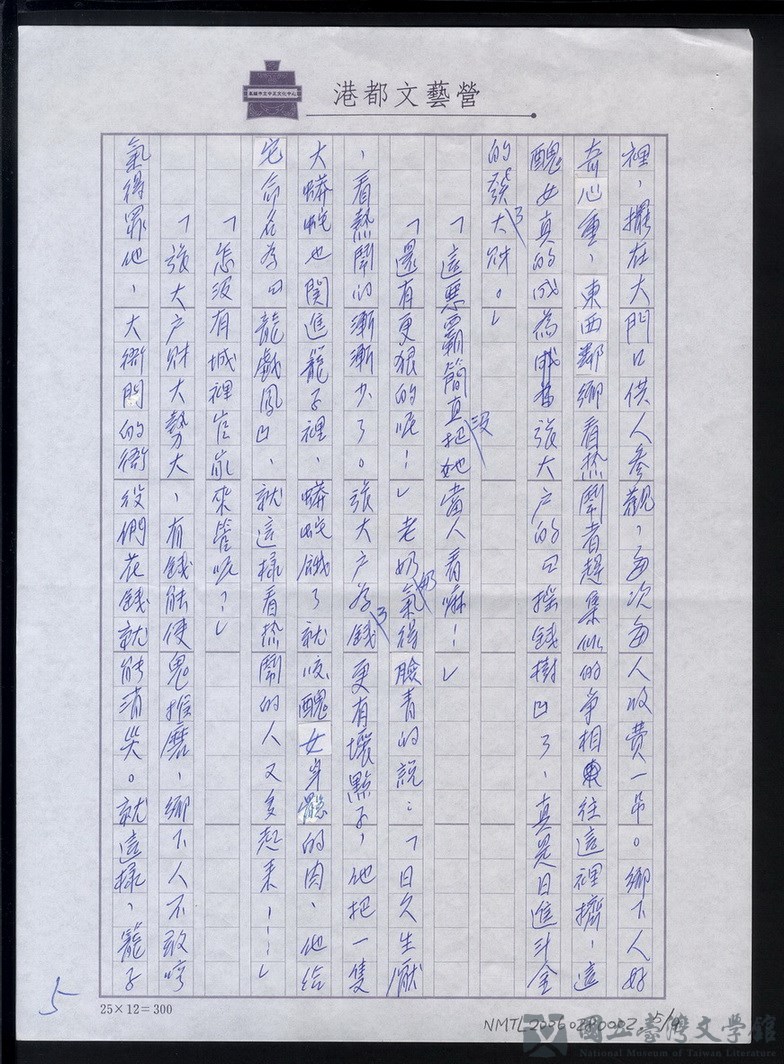 港都文藝營
高雄市立中正文化中心
裡，擺在大門口供人參觀，每次每人收費一吊。鄉下人好
奇心重，東西鄰鄉看热鬧者趕集似的爭相往這裡擠，這
醜女真的成為張大户的『搖錢樹』了，真是日進斗金
的發了大財。」
「這惡霸簡直沒把她當人看嘛！」
「還有更狠的呢！」老奶奶氣得臉青的說：「日久生厭
，看熱鬧的漸漸少了。張大户為了錢更有壞點子，他把一隻
大蟒蛇也関進籠子裡，蟒蛇餓了就咬醜女身體的肉，他給
它命名為『龍戲鳳』，就這樣看热鬧的人又多起來……」
「怎沒有城裡官家來管呢？」
「張大户財大勢大，有錢能使鬼推磨，鄉下人不敢吭
氣得罪他，大衙門的衙役們花錢就能消災。就這樣，籠子
25×12=300
5
NMTL
國立臺灣文學館
National Museum of Taiwan Literature